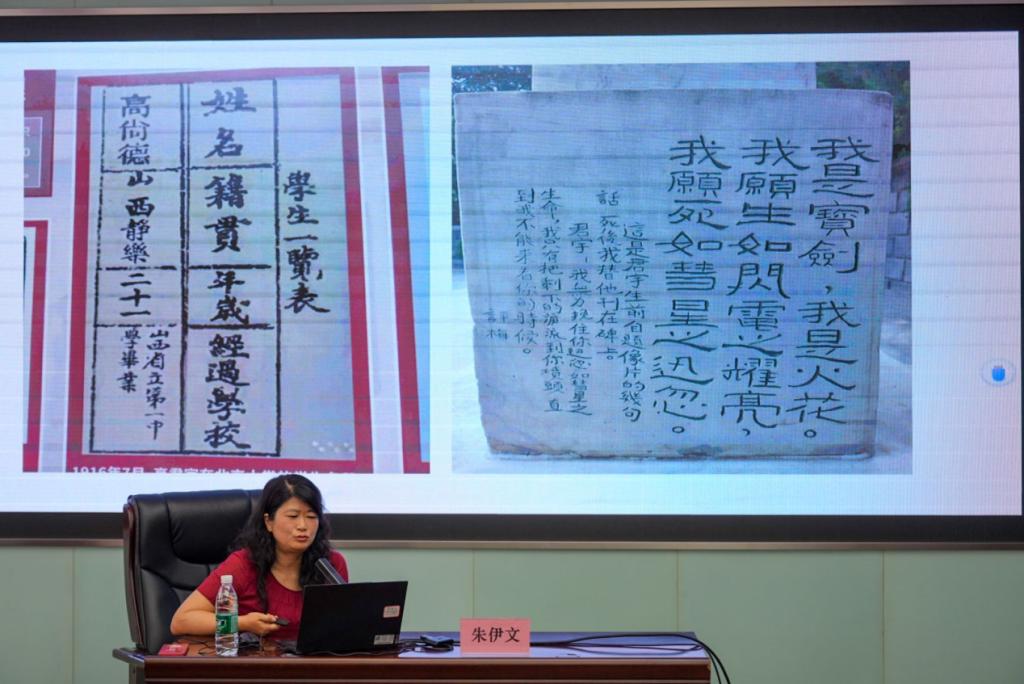 學生一覽表
姓名 籍貫 年歲 經過學校
高尙德 山西靜樂 二十一 山西省立第一中
學畢業
1916年7月
我是寶劍，我是火花。
我願生如閃電之耀亮，
我願死如彗星之迅忽。
這是君宇生前自題像片的幾句
話，死後我替他刊在碑上。
君宇，我無力挽住你迅忽如彗星之
生命，我只有把剩下的淚流到你墳頭，直
到我不能來看你的時候。
評梅
朱伊文